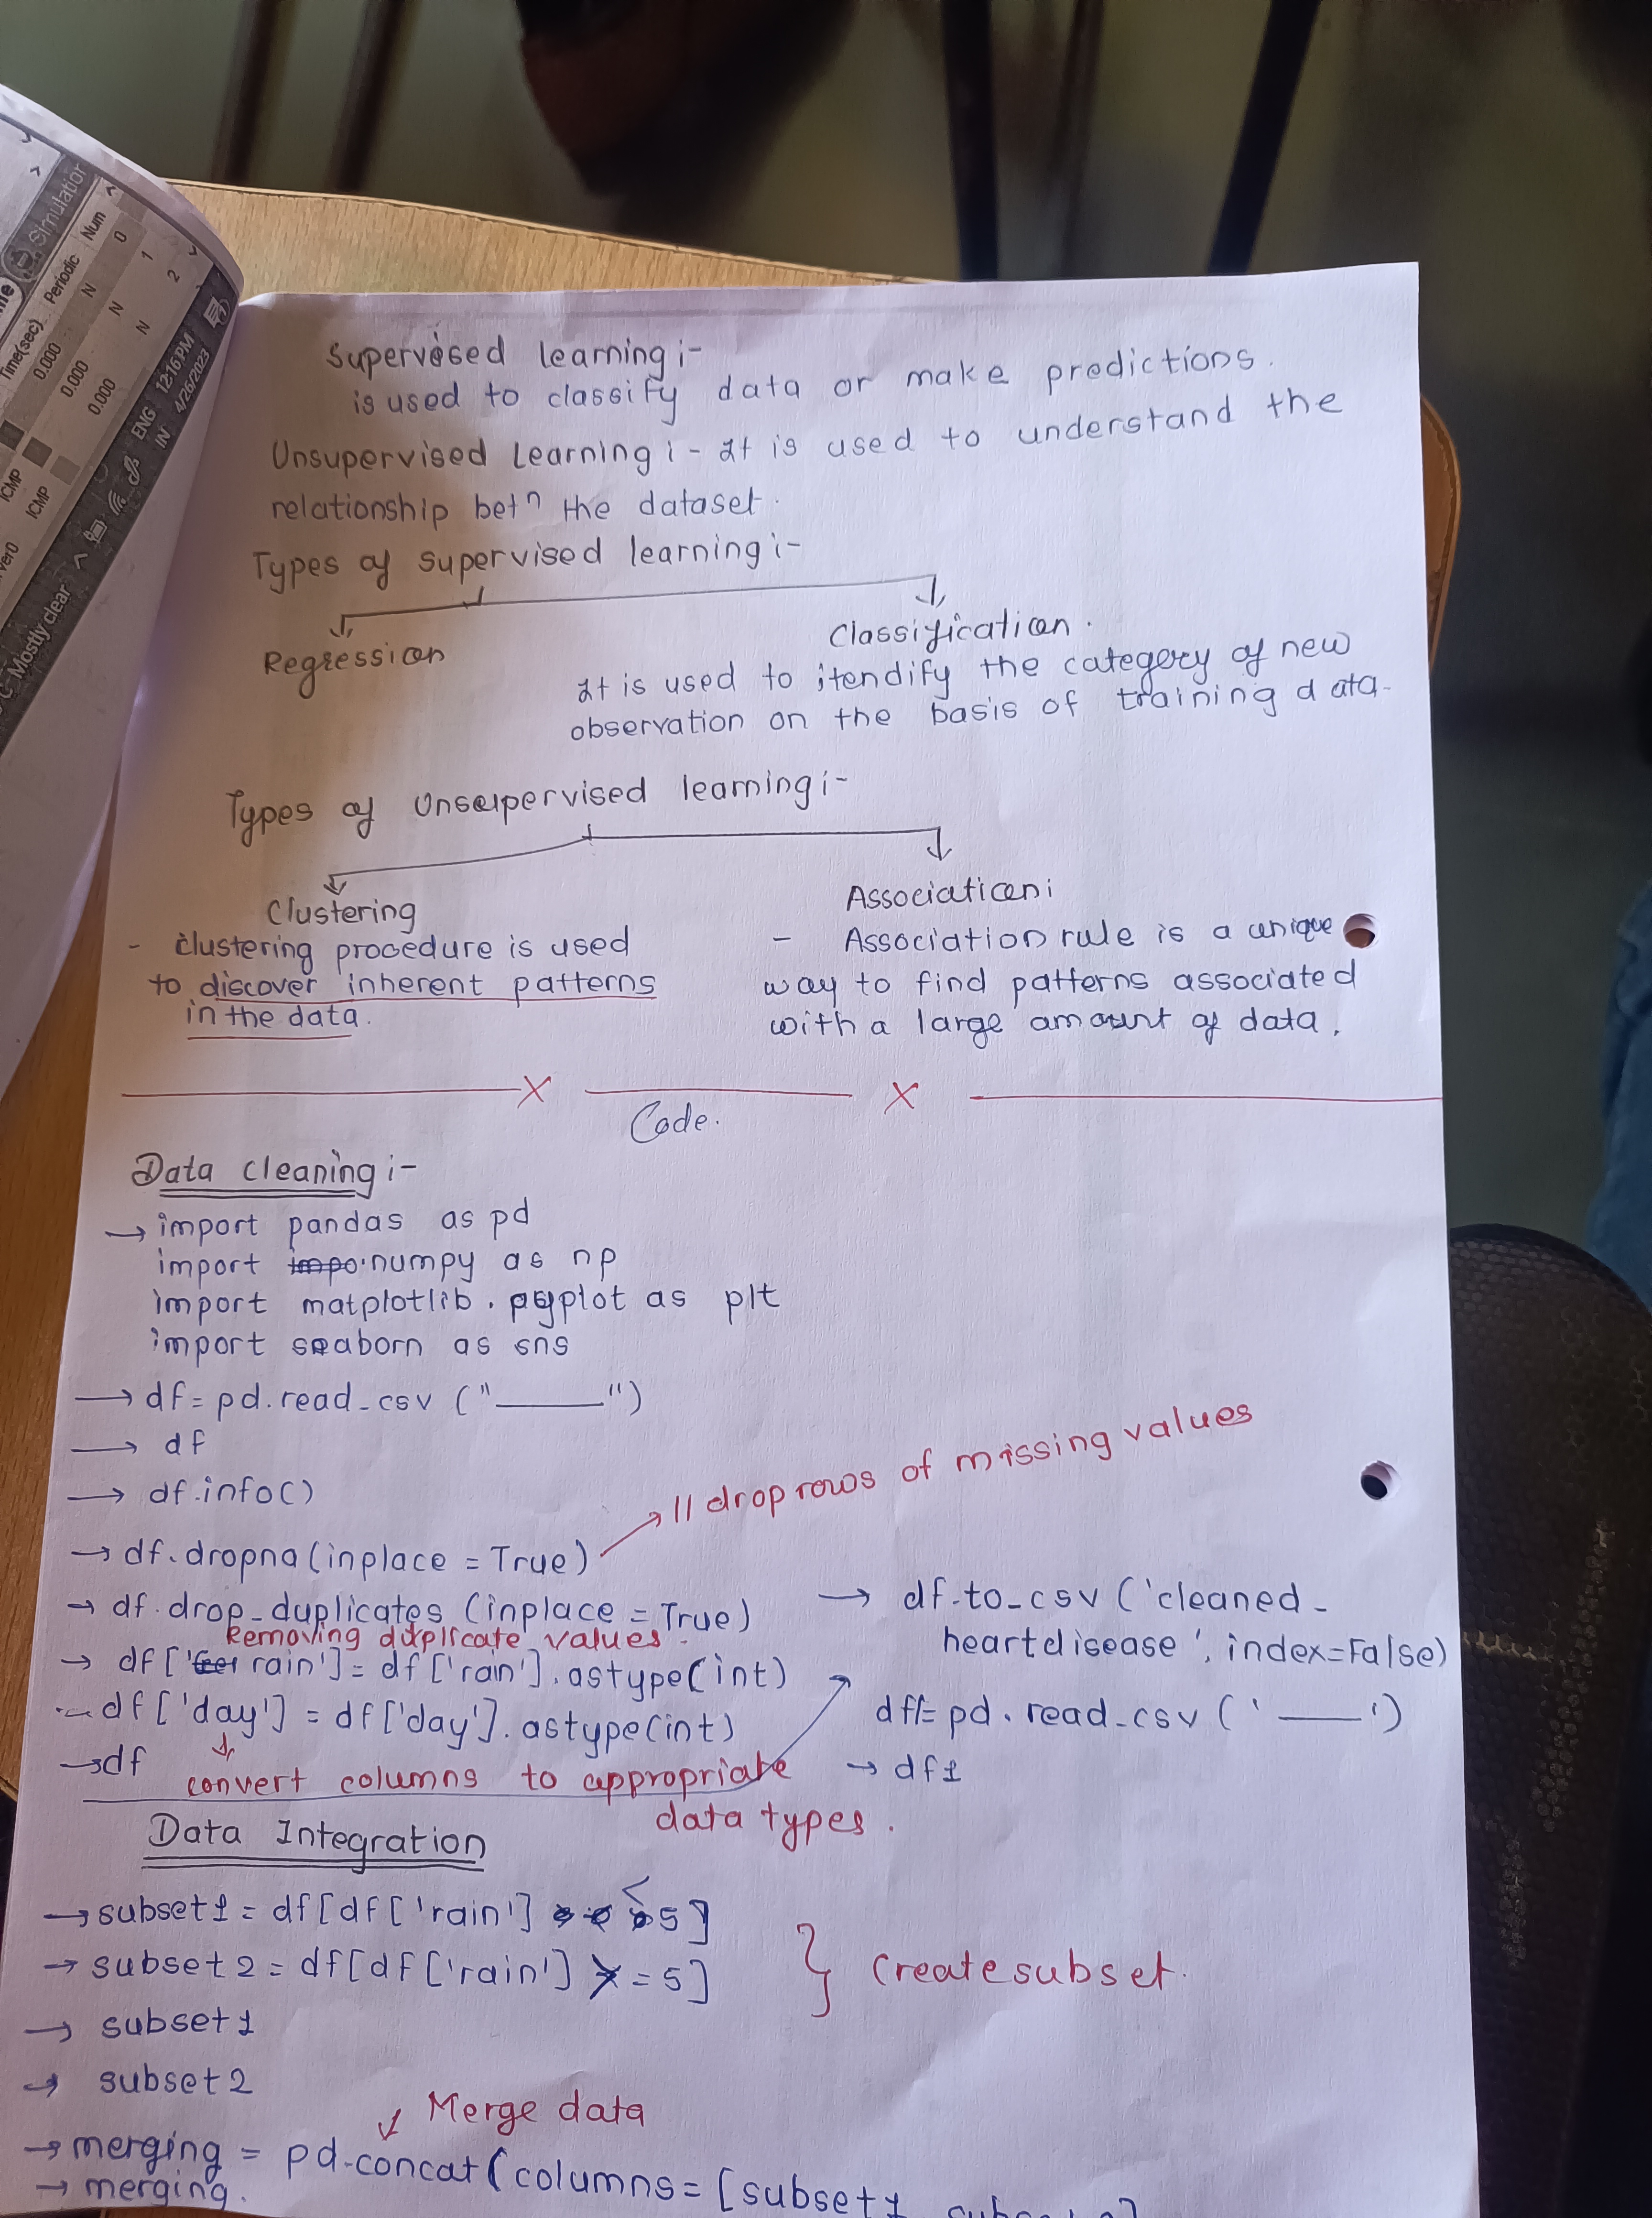 Simulation
Time(sec) Periodic Num
0.000 N 0
0.000 N 1
0.000 N 2
ICMP
ICMP
ver0
Mostly clear
ENG 12:16 PM
IN 4/26/2023
Supervised learning :-
is used to classify data or make predictions.
Unsupervised Learning :- It is used to understand the
relationship betn the dataset.
Types of supervised learning :-
Regression
Classification.
It is used to itendify the category of new
observation on the basis of training data.
Types of Unsupervised learning :-
Clustering
- clustering procedure is used
to discover inherent patterns
in the data.
Association :
- Association rule is a unique
way to find patterns associated
with a large amount of data.
X X
Code.
Data cleaning :-
→ import pandas as pd
import numpy as np
import matplotlib.pyplot as plt
import seaborn as sns
→ df = pd.read_csv ("______")
→ df
→ df.info()
→ df.dropna(inplace = True) → // drop rows of missing values
→ df.drop_duplicates (inplace = True)
Removing duplicate values.
→ df['rain'] = df['rain'].astype(int)
→ df['day'] = df['day'].astype(int)
→ df
convert columns to appropriate
data types.
→ df.to_csv ('cleaned_
heartdisease', index=False)
df1= pd.read_csv ('____')
→ df1
Data Integration
→ subset1 = df[df['rain'] < 5]
→ subset2 = df[df['rain'] >= 5]
} Create subset.
→ subset1
→ subset2
Merge data
→ merging = pd.concat(columns = [subset1, subset2]
→ merging.